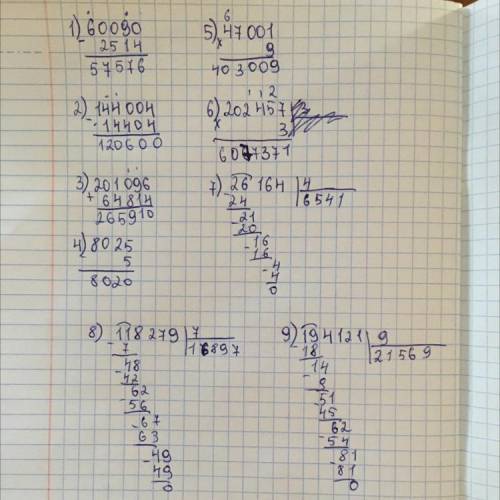 1) 60090
- 2514
57576
2) 144004
- 14404
120600
3) 201096
+ 64814
265910
4) 8025
- 5
8020
5) 6
47001
x 9
403009
6) 112
202457
x 3
6077371
7) 26164 | 4
- 24 | 6541
21
- 20
- 16
16
- 4
4
0
8) 118279 | 7
- 7 | 16897
- 48
42
- 62
56
- 67
63
- 49
49
0
9) 194121 | 9
- 18 | 21569
- 14
- 9
- 51
45
- 62
54
- 81
81
0